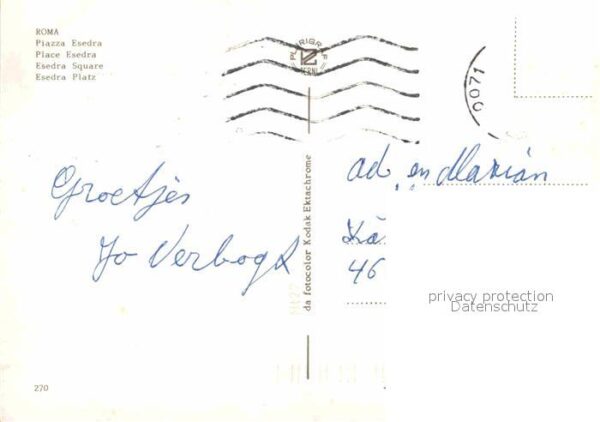 ROMA
Piazza Esedra
Place Esedra
Esedra Square
Esedra Platz
PLURIGRAF
TERNI
da fotocolor Kodak Ektachrome
Groetjes
Jo Verbogt
ad. en Marian
46
privacy protection
Datenschutz
270